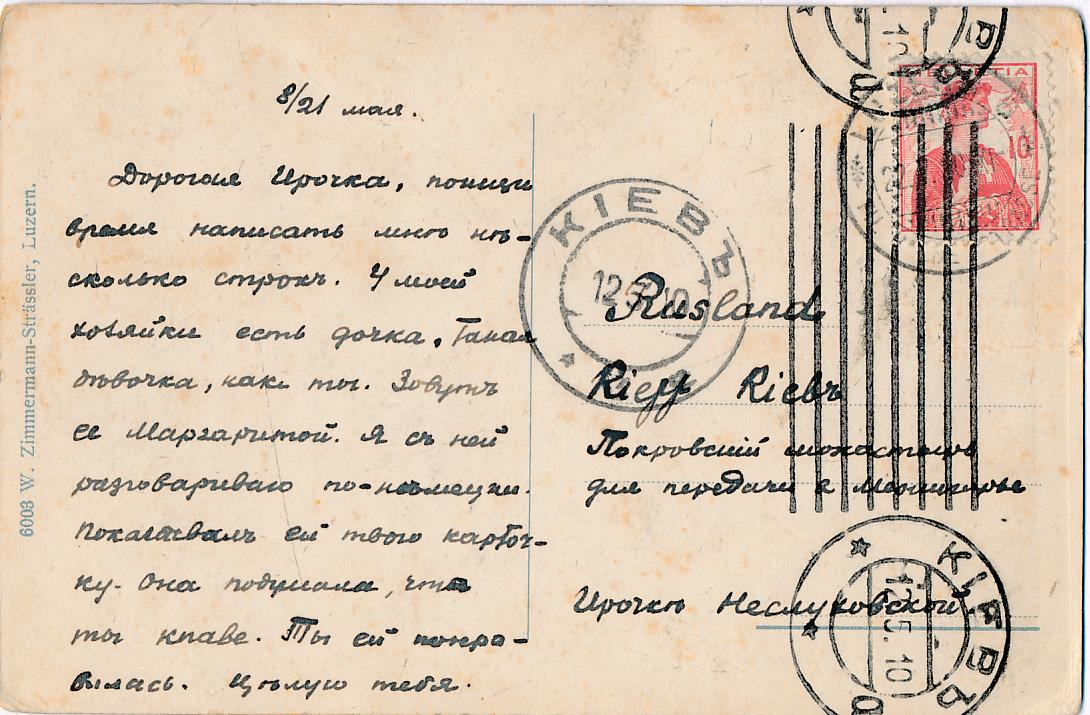 8/21 мая.
Дорогая Ирочка, поищи
время написать мнѣ нѣ-
сколько строкъ. У моей
хозяйки есть дочка, такая
дѣвочка, какъ ты. Зовутъ
ее Маргаритой. Я съ ней
разговариваю по-нѣмецки.
Показывалъ ей твою карточ-
ку. Она подумала, что
ты
Ты ей понра-
вилась. Цѣлую тебя.
6003 W. Zimmermann-Strässler, Luzern.
HELVETIA
10
КІЕВЪ
12.5.10
Rusland
Kieff Kiebъ
Покровскій монастырь
для передачи в
Ирочкѣ Неслуховской
КІЕВЪ
12.5.10